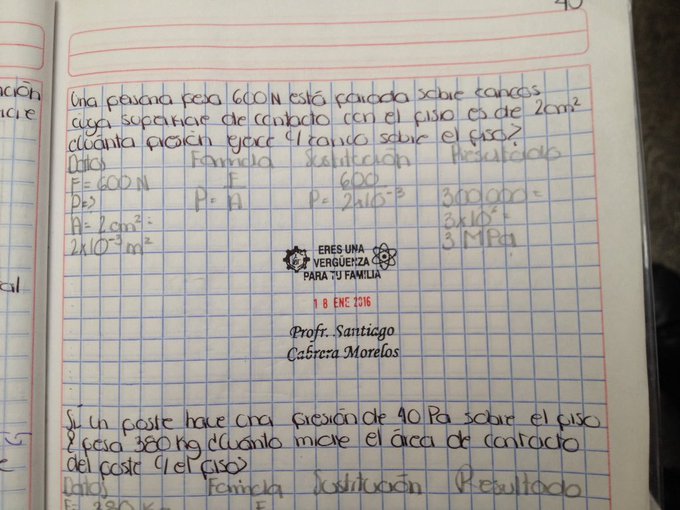 40
ción
icie
Una persona pesa 600N está parada sobre zancos
cuya superficie de contacto con el piso es de 2cm²
¿Cuánta presión ejerce c/zanco sobre el piso?
Datos Formula Sustitución Resultado
F = 600 N F 600 300 000 =
P=? P = A P = 2x10⁻³ 3x10⁶ =
A = 2 cm² = 3 MPa
2x10⁻³ m²
ERES UNA
VERGÜENZA
PARA TU FAMILIA
18 ENE 2016
Profr. Santiago
Cabrera Morelos
al
Si un poste hace una presión de 40 Pa sobre el piso
y pesa 380 Kg ¿Cuánto mide el área de contacto
del poste c/ el piso?
Datos Formula Sustitución Resultado
F= 380 K F